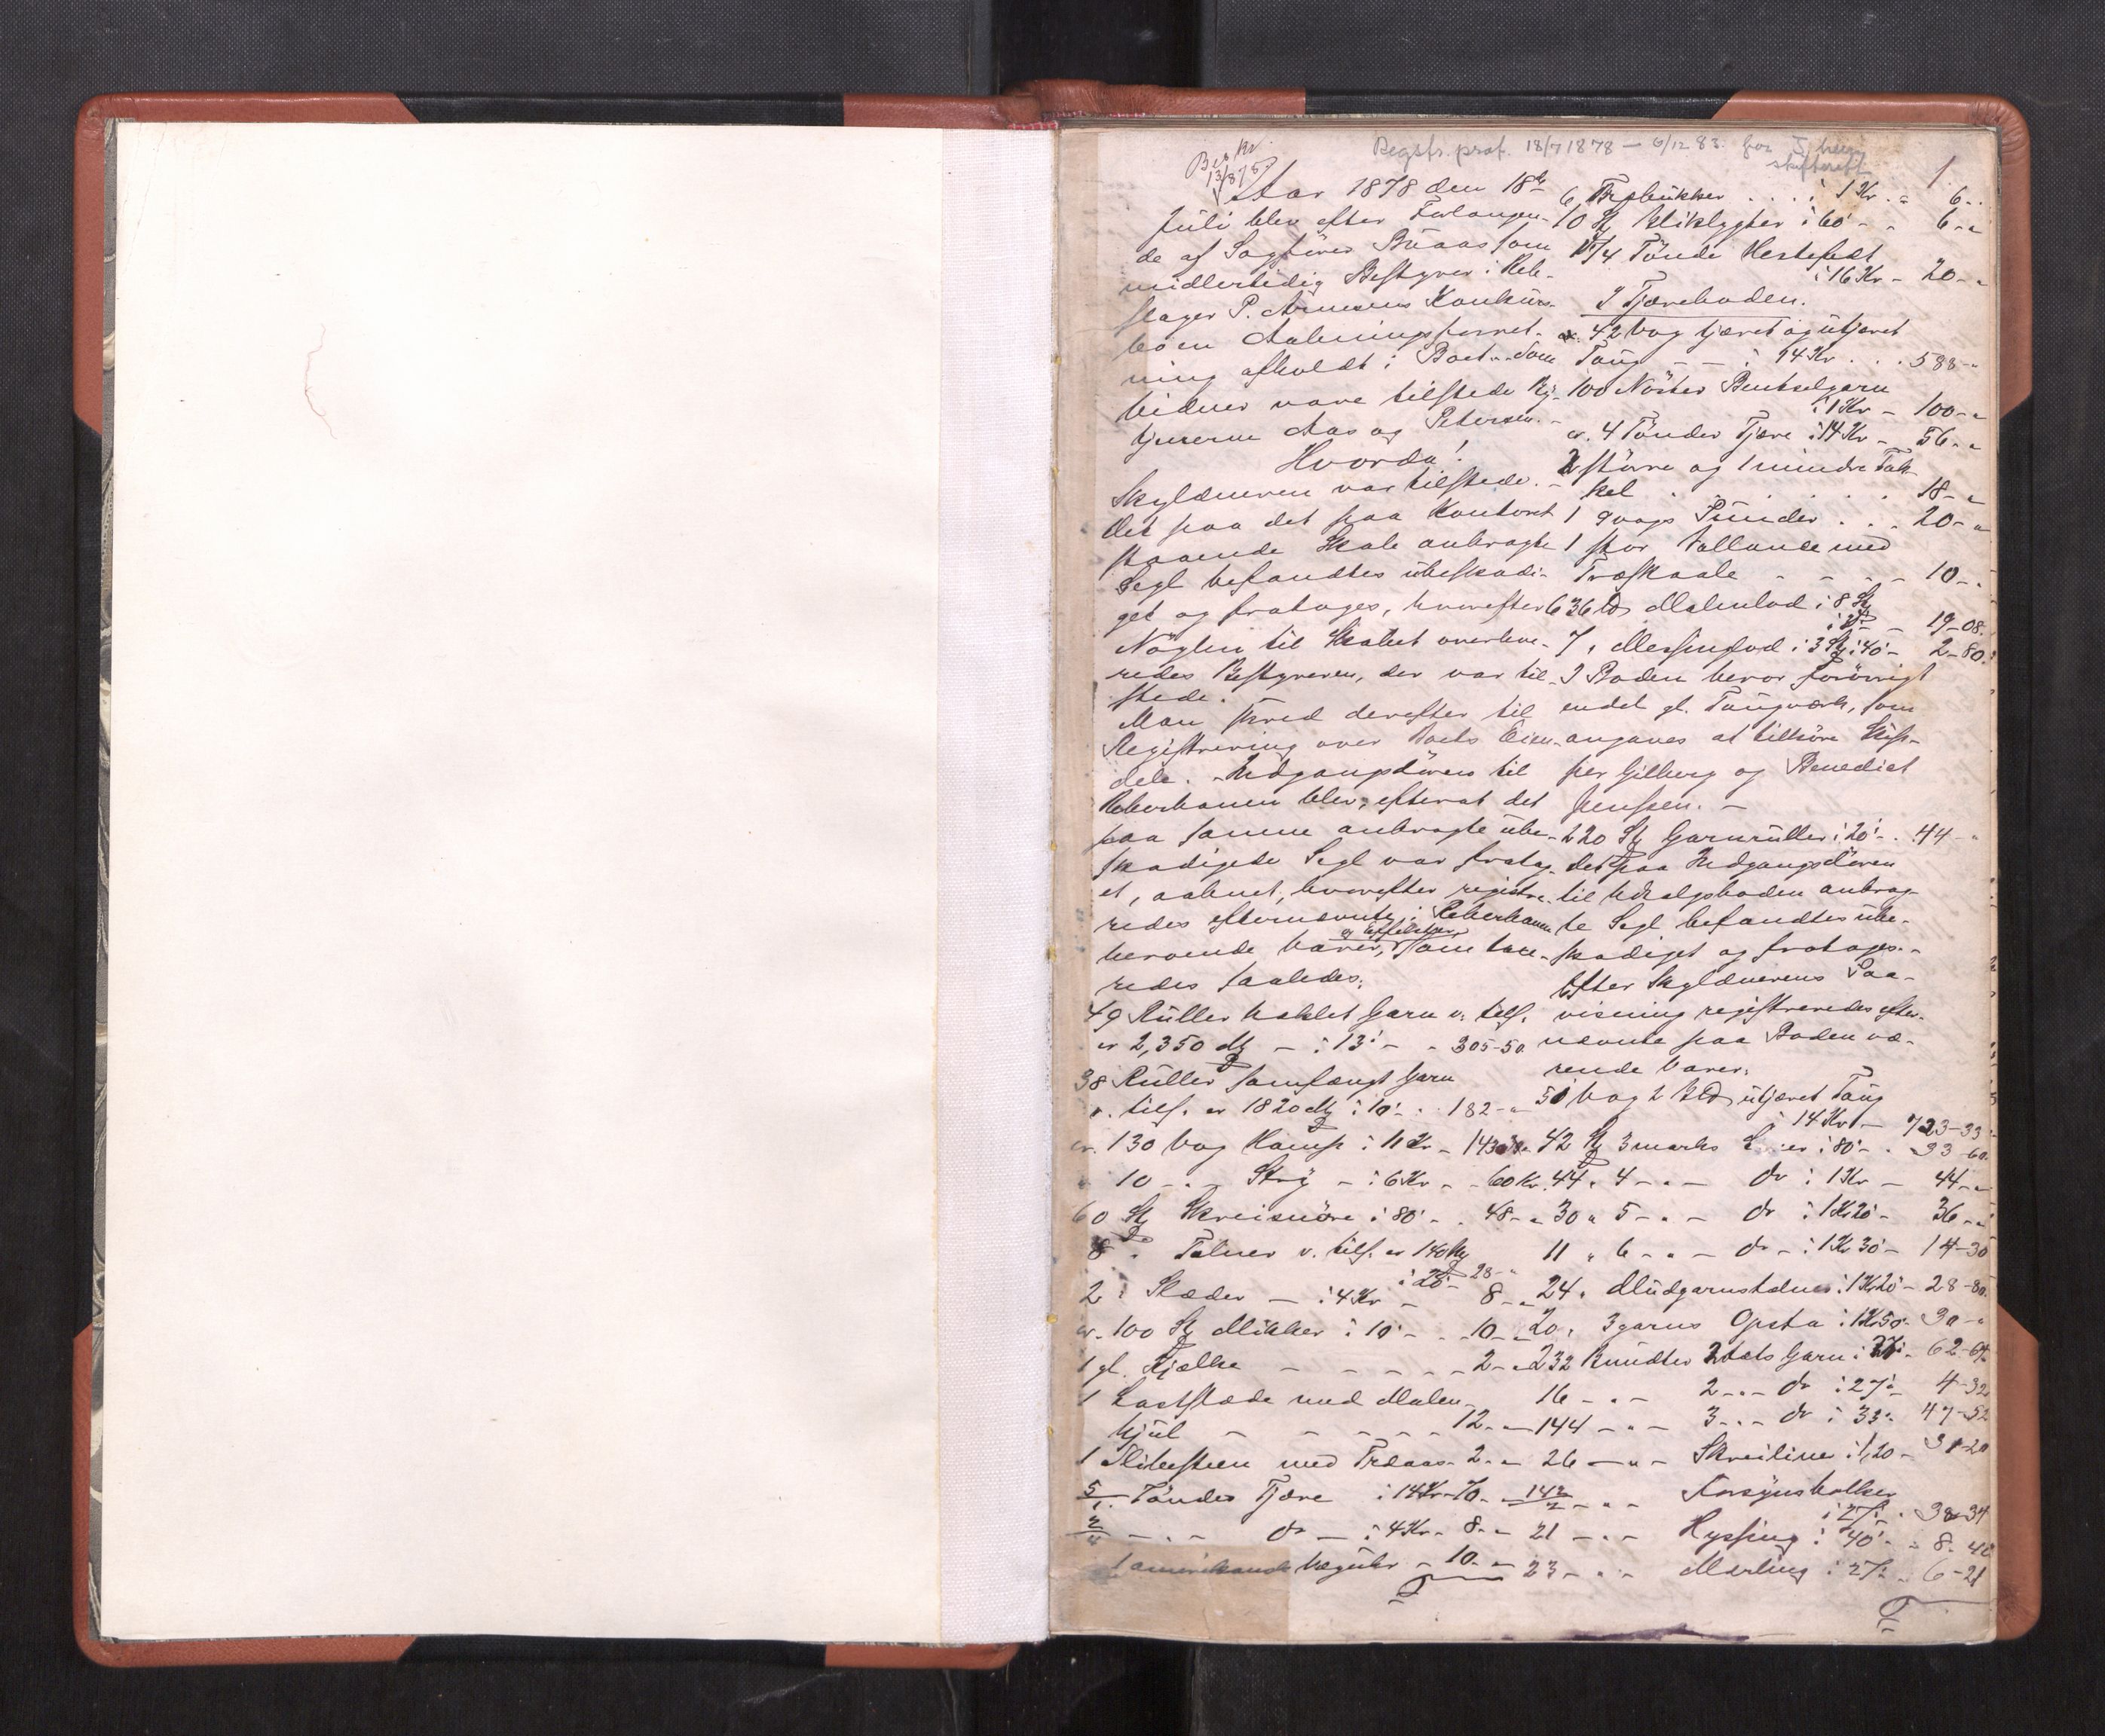 Regstr. prot. 18/7 1878 – 6/12 83. for
skifterett
1.
13/8 78
Aar 1878 den 18de
Juli blev efter Forlangen-
de af Sagfører Buaas som
midlertidig Bestyrer i Reb-
slager P. Arnesens Konkurs-
bo en Aabningsforret-
ning afholdt i Boet. Som
Vidner vare tilstede
tjenerne Aas og Petersen. –
Hvorda!
Skyldneren var tilstede. –
Det paa det paa Kontoret
staaende Skab anbragte
Segl befandtes ubeskadi-
get og fratoges, hvorefter
Nøglen til Skabet overleve-
redes Bestyreren, der var til-
stede.
Man skred derefter til
Registrering over Boets Eien-
dele. – Indgangsdøren til
Reberbanen blev, efterat det
paa samme anbragte ube-
skadigede Segl var fratag-
et, aabnet, hvorefter registre-
redes efternævnte, i Reberbanen
beroende Varer, og Effekter som taxe-
redes saaledes:
49 Ruller heklet Garn v. tils.
er 2,350 – i 13 – - 305-50
38 Ruller Garn
v. tils. er 1820 i 10 - 182 -
cr. 130 Vog Hamp i 11 Kr –
10 – - – Stry – i 6 Kr – - 60 Kr.
60 St Skreisnøre i 80 - . 48 -
8 " Telner v. tils. er 140
i 20 - 28 -
2 " Slæder – i 4 Kr – 8 -
cr. 100 St Mikker i 10 - . 10 -
1 gl. Kjælke – – – – 2 -
1 Lastslæde med Malen-
hjul – – – – – 12 -
1 Slibesteen med Trdaas - 2 -
5/1 Tønder Tjære i 14 Kr - 70 -
2/4 – - – do – i 4 Kr - 8 -
1 amerikansk Væguhr – 10 -
6 Træbukker . . . . i 1 Kr . - 6 -
10 St Bliklygter i 60 - - 6 -
5/4 Tønde Hestefedt
i 16 Kr - 20 -
I Tjæreboden.
cr. 42 Vog tjæret og utjæret
Taug – – i 14 Kr . . . 588 -
100 Nøster Bentselgarn
i 1 Kr - 100 -
cr. 4 Tønder Tjære i 14 Kr - 56 -
2 større og 1 mindre Tak-
kel . . . . . . . 18 -
1 9 vogs Punder . . . 20 -
1 stor Vallance med
Træskaale - - - - 10 -
636 Malmlod i 3
19-08.
7 " Messinglod i 40 - 2-80.
I Boden beror forøvrigt
endel gl. Taugværk, som
angaves at tilhøre Skip-
per Gilberg og Benedict
Jenssen. –
220 St Garnruller i 20 - . 44 -
Det paa Indgangsdøren
til Udsalgsboden anbrag-
te Segl befandtes ube-
skadiget og fratoges. –
Efter Skyldnerens Paa-
visning registreredes efter-
nævnte paa Boden væ-
rende Varer:
51 Vog 2 utjæret Taug
i 14 Kr - 723-33
42 St 3 marks i 80 - . 33-60
44 " 4 – - – do i 1 Kr – 44 -
30 " 5 – - – do i 1 Kr 20 - 36 -
11 " 6 – - – do – i 1 Kr 30 - 14-30
24 " Mudgarnstelner i 1 Kr 20 - 28-80
20 " 3 garns Opsta i 1 Kr 50 - 30 -
232 Bundter 2 tots Garn i 27 - 62-64
16 – - – 2 - - do i 27 - 4-32
144 – - – 3 - - do i 33 - 47-52
26 – " – Skreiline i 1,20 - 31-20
142/2 – " – Forsynsballer
i 27 -
21 – - – Hyssing i 40 - - 8-40
23 – - – Merling i 27 - 6-21